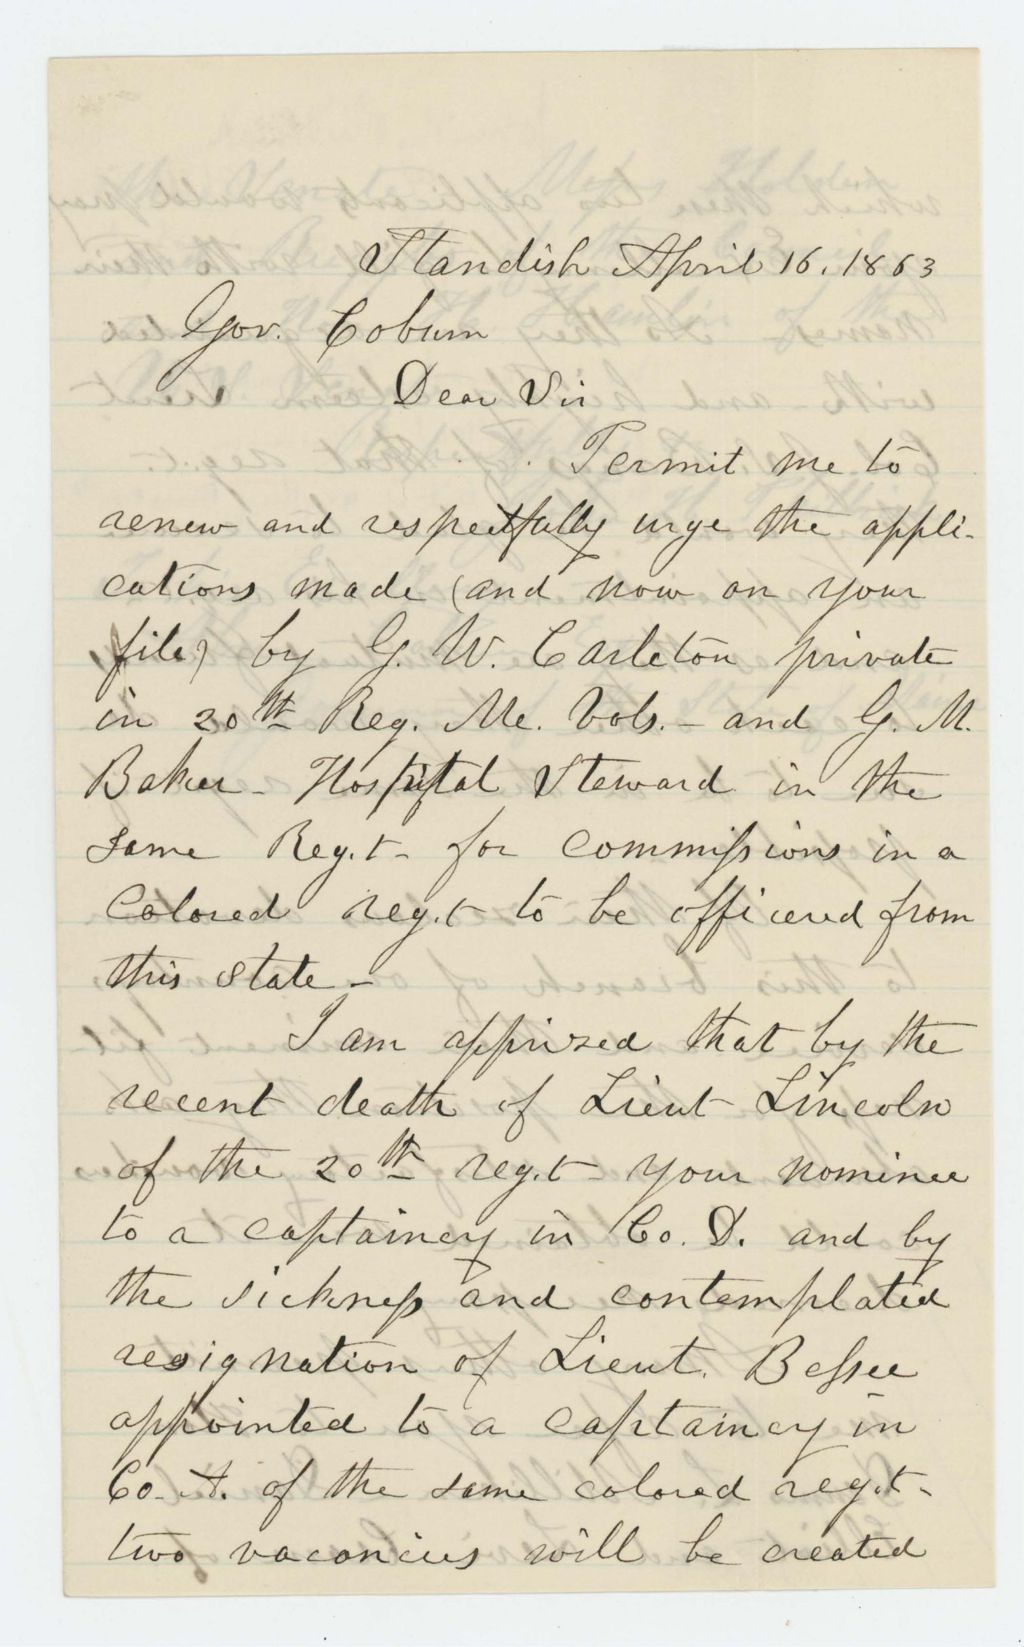 Standish April 16. 1863
Gov. Coburn
Dear Sir
Permit me to
renew and respectfully urge the appli-
cations made (and now on your
file) by G. W. Carleton private
in 20th Reg. Me. Vols. - and G. M.
Baker - Hospital Steward in the
same Reg.t - for commissions in a
Colored reg.t to be officered from
this State -
I am apprised that by the
recent death of Lieut Lincoln
of the 20th reg.t - your nominee
to a captaincy in Co. D. and by
the sickness and contemplated
resignation of Lieut. Bessee
appointed to a captaincy in
Co. A. of the same colored reg.t -
two vacancies will be created